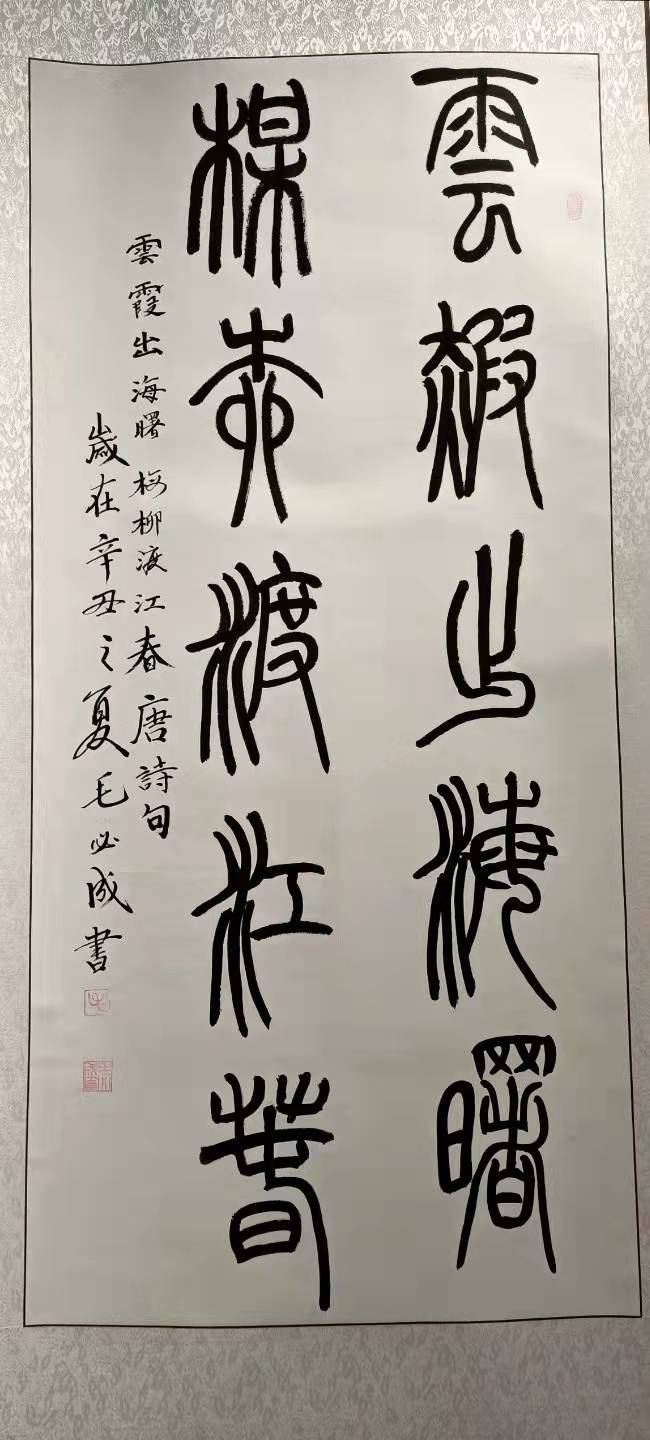 雲赮出海曙
楳桺渡江萅
雲霞出海曙梅柳渡江春唐詩句
歲在辛丑之夏毛必成書